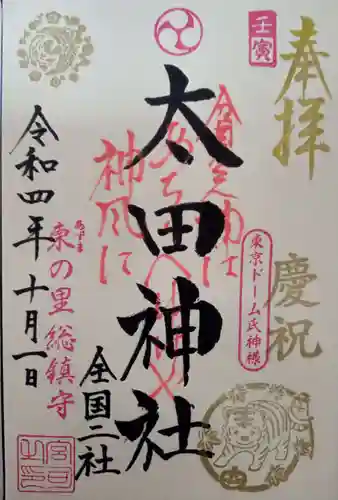 奉拝
慶祝
壬寅
東京ドーム氏神様
太田神社
全国二社
神風に
東の里総鎮守
あずま
令和四年十月一日